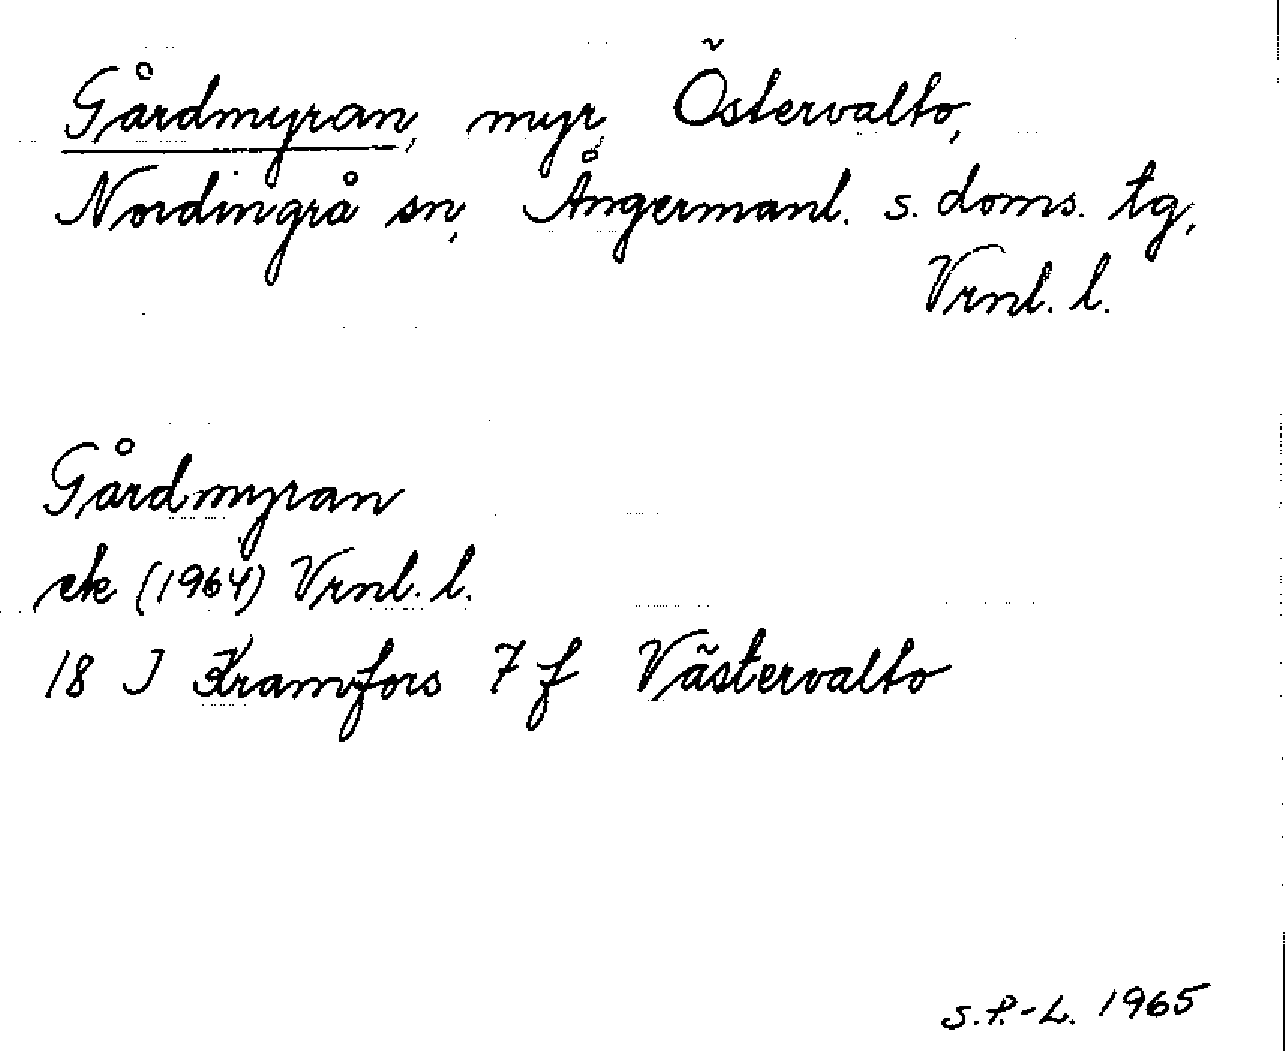 Gårdmyran, myr, Östervalto,
Nordingrå sn, Ångermanl. s. doms. tg,
Vrnl. l.
Gårdmyran
ek (1964) Vrnl. l.
18 J Kramfors 7 f Västervalto
S.P.-L. 1965